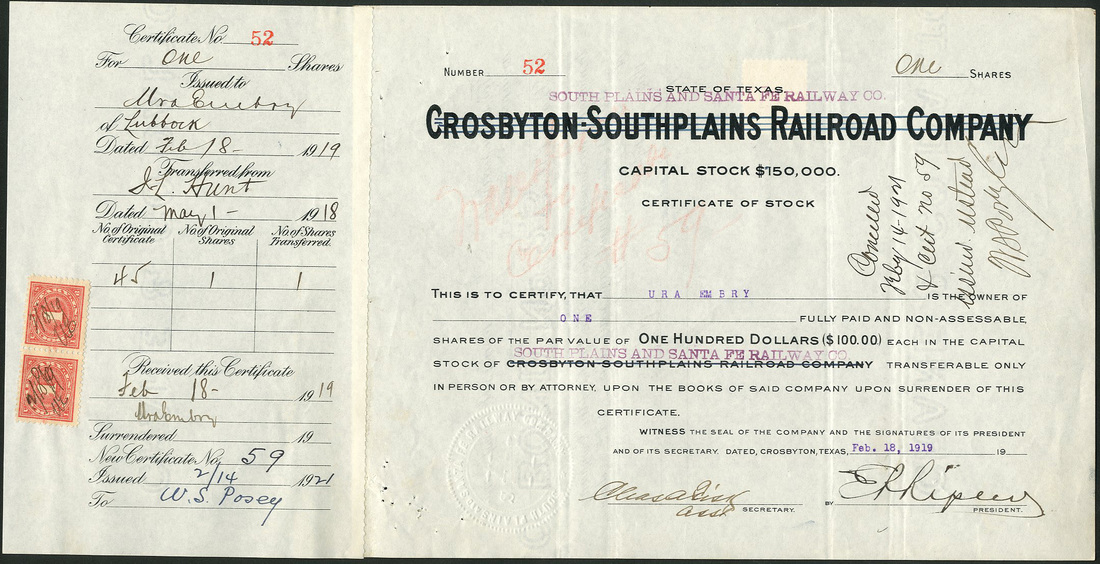 Certificate No. 52
For One Shares
Issued to
Ura Embry
of Lubbock
Dated Feb 18- 1919
Transferred from
J.L. Hunt
Dated May 1- 1918
No. of Original Certificate
No. of Original Shares
No. of Shares Transferred.
45 1 1
Received this Certificate
Feb 18- 1919
Ura Embry
Surrendered 19
New Certificate No. 59
Issued 2/14 1921
To W.S. Posey
NUMBER 52
One SHARES
STATE OF TEXAS
SOUTH PLAINS AND SANTA FE RAILWAY CO.
CROSBYTON-SOUTHPLAINS RAILROAD COMPANY
CAPITAL STOCK $150,000.
CERTIFICATE OF STOCK
# 59
Cancelled
Feby 14-1921
& Cert no 59
issued instead
THIS IS TO CERTIFY, THAT URA EMBRY IS THE OWNER OF
ONE FULLY PAID AND NON-ASSESSABLE,
SHARES OF THE PAR VALUE OF ONE HUNDRED DOLLARS ($100.00) EACH IN THE CAPITAL
SOUTH PLAINS AND SANTA FE RAILWAY CO.
STOCK OF CROSBYTON-SOUTHPLAINS RAILROAD COMPANY TRANSFERABLE ONLY
IN PERSON OR BY ATTORNEY, UPON THE BOOKS OF SAID COMPANY UPON SURRENDER OF THIS
CERTIFICATE.
WITNESS THE SEAL OF THE COMPANY AND THE SIGNATURES OF ITS PRESIDENT
AND OF ITS SECRETARY. DATED, CROSBYTON, TEXAS, Feb. 18, 1919 19
Asst. SECRETARY.
BY PRESIDENT.